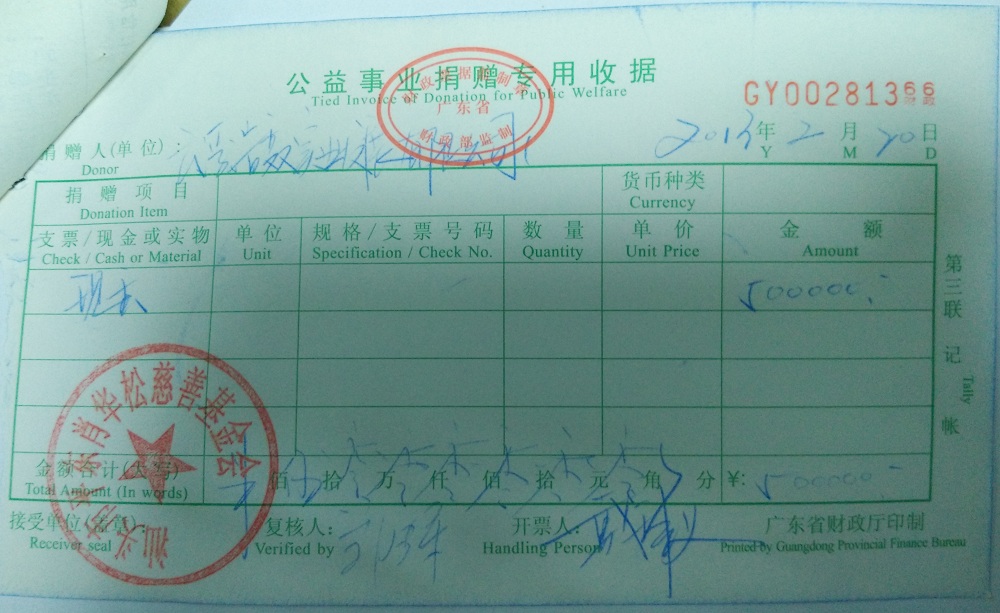 公益事业捐赠专用收据
Tied Invoice of Donation for Public Welfare
财政票据监制章
广东省
财政部监制
GY00281366
财政
捐赠人(单位): 实业 有限公司
Donor
2013年2月20日
Y M D
捐赠项目 货币种类
Donation Item Currency
支票/现金或实物 单位 规格/支票号码 数量 单价 金额
Check / Cash or Material Unit Specification / Check No. Quantity Unit Price Amount
现金 500000
第三联 记帐
Tally
肖华松慈善基金会
金额合计(大写) 佰 拾 万 仟 佰 拾 元 角 分 ¥: 500000
Total Amount (In words)
接受单位(盖章): 复核人: 开票人: 广东省财政厅印制
Receiver seal Verified by Handling Person Printed by Guangdong Provincial Finance Bureau